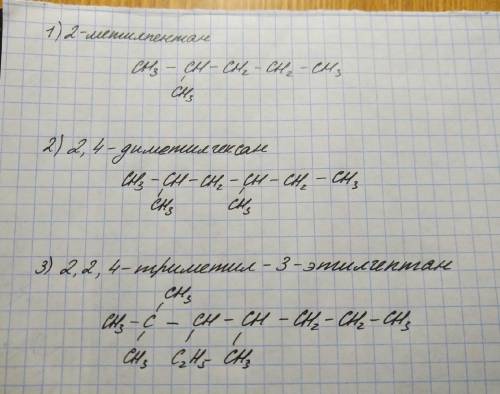 1) 2-метилпентан
CH3 - CH - CH2 - CH2 - CH3
CH3
2) 2,4-диметилгексан
CH3 - CH - CH2 - CH - CH2 - CH3
CH3 CH3
3) 2,2,4-триметил-3-этилгептан
CH3
CH3 - C - CH - CH - CH2 - CH2 - CH3
CH3 C2H5 CH3